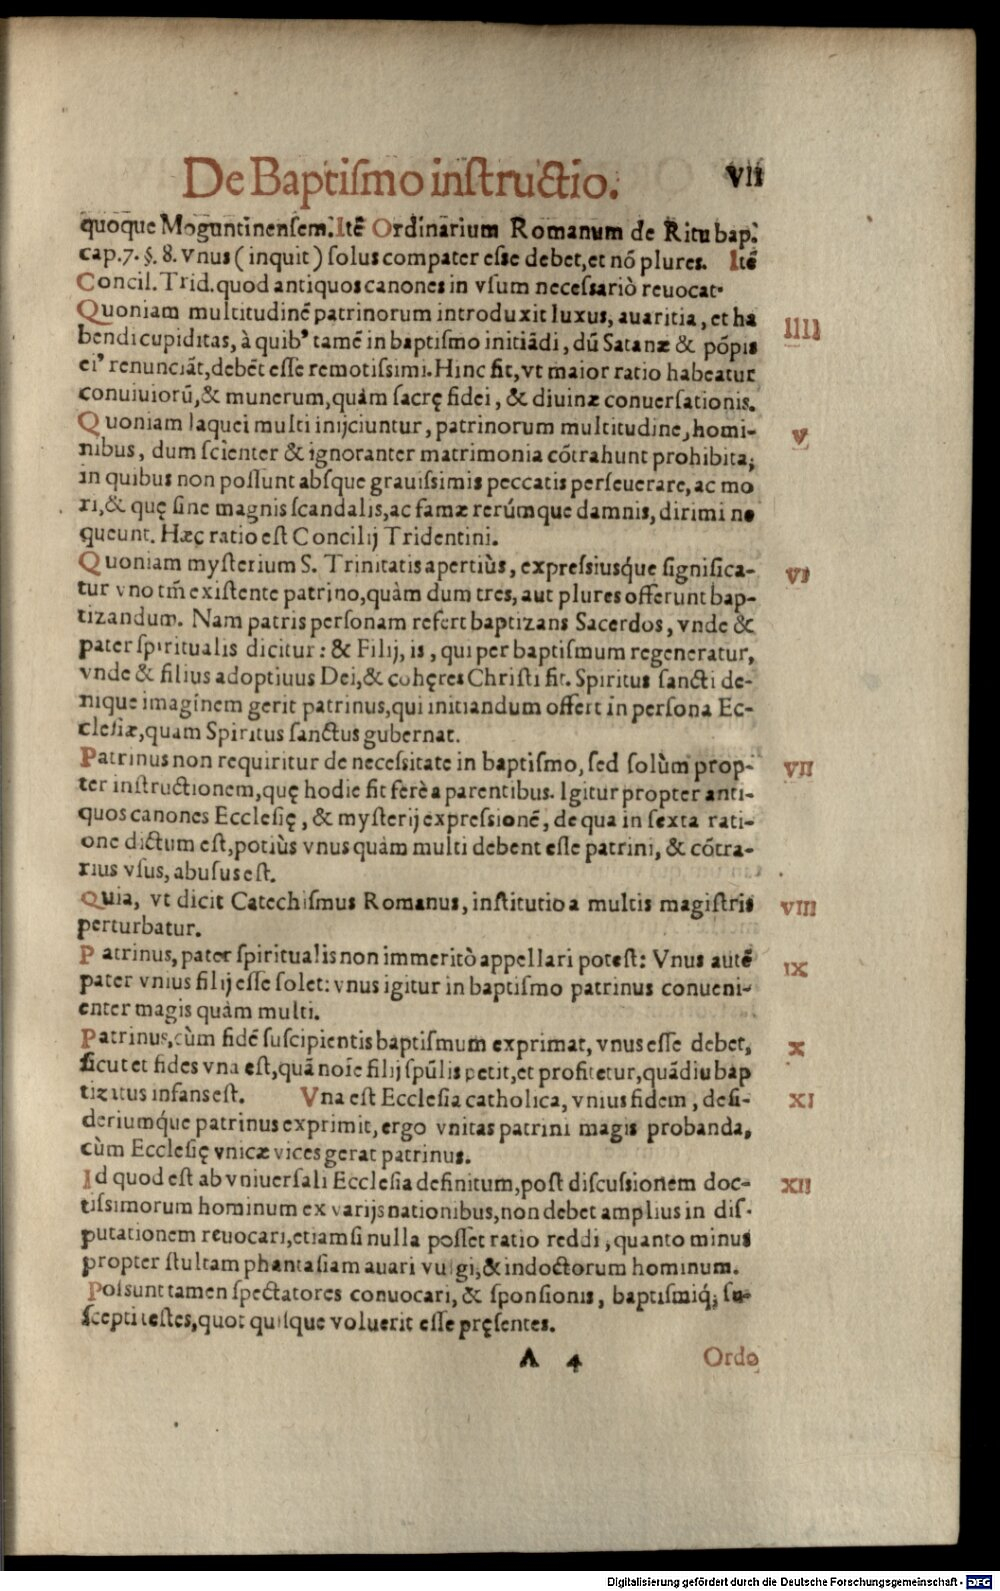 De Baptiſmo inſtructio. VII
quoque Moguntinenſem. Itē Ordinarium Romanum de Ritu bap.
cap. 7. §. 8. Vnus (inquit) ſolus compater eſse debet, et nō plures. Itē
Concil. Trid. quod antiquos canones in vſum neceſsariò reuocat.
Quoniam multitudinē patrinorum introduxit luxus, auaritia, et ha IIII
bendi cupiditas, à quib' tamē in baptiſmo initiādi, dū Satanæ & pōpis
ei' renunciāt, debēt eſſe remotiſsimi. Hinc fit, vt maior ratio habeatur
conuiuiorū, & munerum, quàm ſacrę fidei, & diuinæ conuerſationis.
Quoniam laquei multi inijciuntur, patrinorum multitudine, homi- V
nibus, dum ſcienter & ignoranter matrimonia cōtrahunt prohibita;
in quibus non poſſunt abſque grauiſsimis peccatis perſeuerare, ac mo
ri, & quę ſine magnis ſcandalis, ac famæ rerúmque damnis, dirimi ne
queunt. Hæc ratio eſt Concilij Tridentini.
Quoniam myſterium S. Trinitatis apertiùs, expreſsiusq́ue ſignifica- VI
tur vno tm̄ exiſtente patrino, quàm dum tres, aut plures offerunt bap-
tizandum. Nam patris perſonam refert baptizans Sacerdos, vnde &
pater ſpiritualis dicitur: & Filij, is, qui per baptiſmum regeneratur,
vnde & filius adoptiuus Dei, & cohęres Chriſti fit. Spiritus ſancti de-
nique imaginem gerit patrinus, qui initiandum offert in perſona Ec-
cleſiæ, quam Spiritus ſanctus gubernat.
Patrinus non requiritur de neceſsitate in baptiſmo, ſed ſolùm prop- VII
ter inſtructionem, quę hodie fit ferè a parentibus. Igitur propter anti-
quos canones Eccleſię, & myſterij expreſsionē, de qua in ſexta rati-
one dictum eſt, potiùs vnus quàm multi debent eſſe patrini, & cōtra-
rius vſus, abuſus eſt.
Quia, vt dicit Catechiſmus Romanus, inſtitutio a multis magiſtris VIII
perturbatur.
Patrinus, pater ſpiritualis non immeritò appellari poteſt: Vnus autē
pater vnius filij eſſe ſolet: vnus igitur in baptiſmo patrinus conueni- IX
enter magis quàm multi.
Patrinus, cùm fidē ſuscipientis baptiſmum exprimat, vnus eſſe debet, X
ſicut et fides vna eſt, quā noīe filij ſpūlis petit, et profitetur, quādiu bap
tizatus infans eſt. Vna eſt Eccleſia catholica, vnius fidem, deſi- XI
deriumq́ue patrinus exprimit, ergo vnitas patrini magis probanda,
cùm Eccleſię vnicæ vices gerat patrinus.
Id quod eſt ab vniuerſali Eccleſia definitum, poſt diſcuſsionem doc- XII
tiſsimorum hominum ex varijs nationibus, non debet amplius in diſ-
putationem reuocari, etiamſi nulla poſſet ratio reddi, quanto minus
propter ſtultam phantaſiam auari vulgi, & indoctorum hominum.
Poſsunt tamen ſpectatores conuocari, & ſponſionis, baptiſmiq́; ſu-
ſcepti teſtes, quot quiſque voluerit eſſe pręſentes.
A 4 Ordo
Digitalisierung gefördert durch die Deutsche Forschungsgemeinschaft - DFG